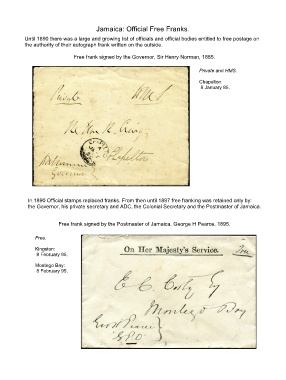 Jamaica: Official Free Franks.
Until 1890 there was a large and growing list of officials and official bodies entitled to free postage on
the authority of their autograph frank written on the outside.
Free frank signed by the Governor, Sir Henry Norman, 1885.
Private and HMS.
Chapelton:
8 January 85.
Private
HMS
The Hon
Chapelton
Governor
In 1890 Official stamps replaced franks. From then until 1897 free franking was retained only by
the Governor, his private secretary and ADC, the Colonial Secretary and the Postmaster of Jamaica.
Free frank signed by the Postmaster of Jamaica, George H Pearce, 1895.
Free.
Kingston:
8 February 95.
Montego Bay:
8 February 95.
On Her Majesty's Service.
Free
E. C. Esq
Montego Bay
Geo H Pearce
G.P.O